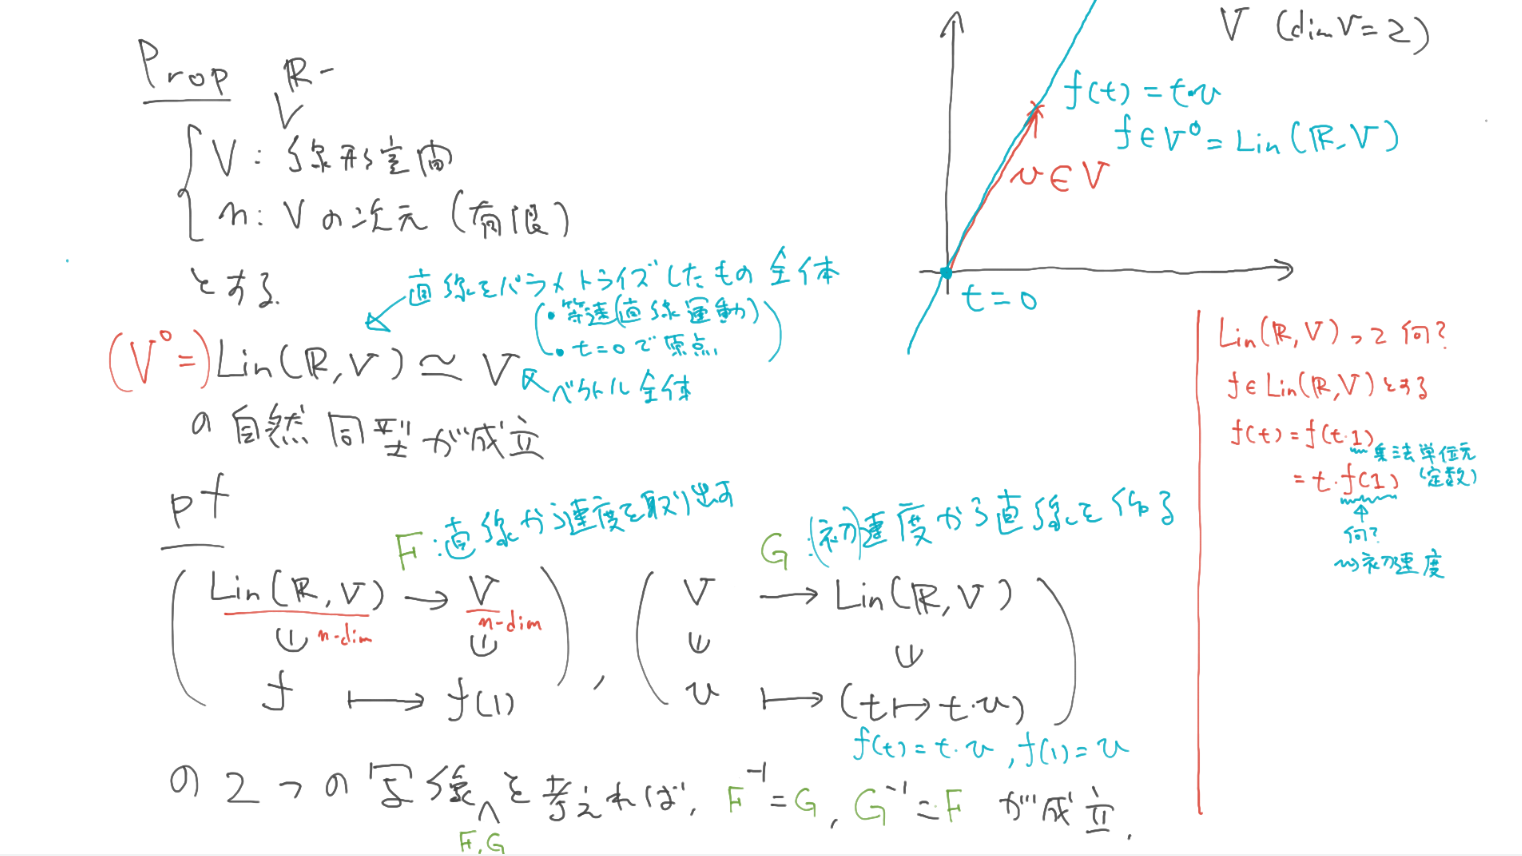 Prop ℝ-
V: 線形空間
n: Vの次元(有限)
とする.
直線をパラメトライズしたもの全体
・等速(直線運動)
・t=0で原点
(V⁰=)Lin(ℝ,V)≃V
ベクトル全体
の自然同型が成立
pf
F:直線から速度を取り出す
G:(初)速度から直線を作る
Lin(ℝ,V)→V
n-dim n-dim
f↦f(1)
,
V→Lin(ℝ,V)
v↦(t↦t・v)
f(t)=t・v, f(1)=v
の2つの写像を考えれば, F⁻¹=G, G⁻¹=F が成立.
F,G
V (dimV=2)
f(t)=t・v
f∈V⁰=Lin(ℝ,V)
v∈V
t=0
Lin(ℝ,V)って何?
f∈Lin(ℝ,V)とする
f(t)=f(t・1)
乗法単位元
=t・f(1) (定数)
何?
⇝初速度